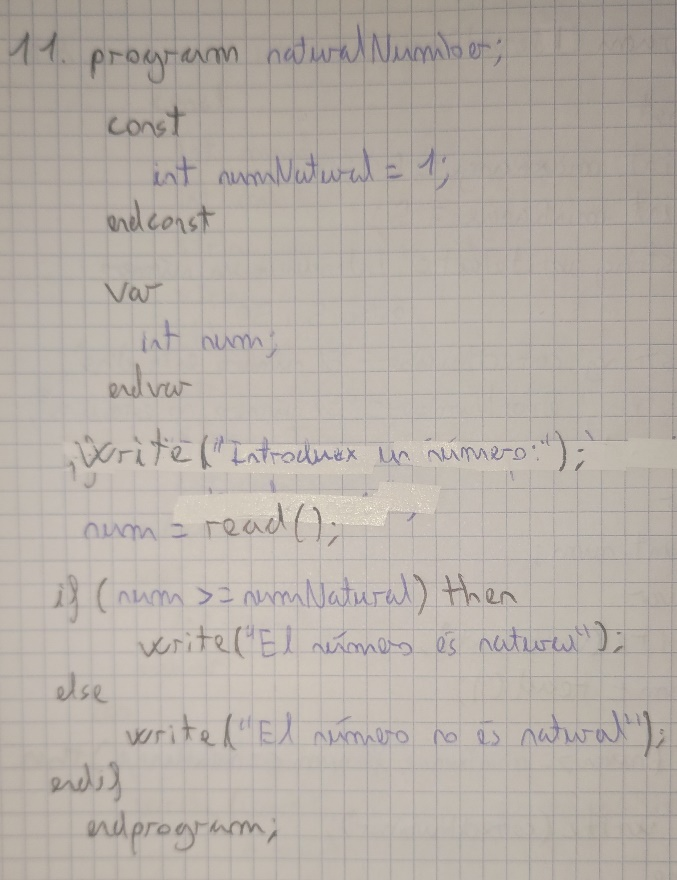 11. program naturalNumber;
const
int numNatural = 1;
endconst
var
int num;
endvar
write("Introduex un número:");
num = read();
if (num >= numNatural) then
write("El número és natural");
else
write("El número no és natural");
endif
endprogram;